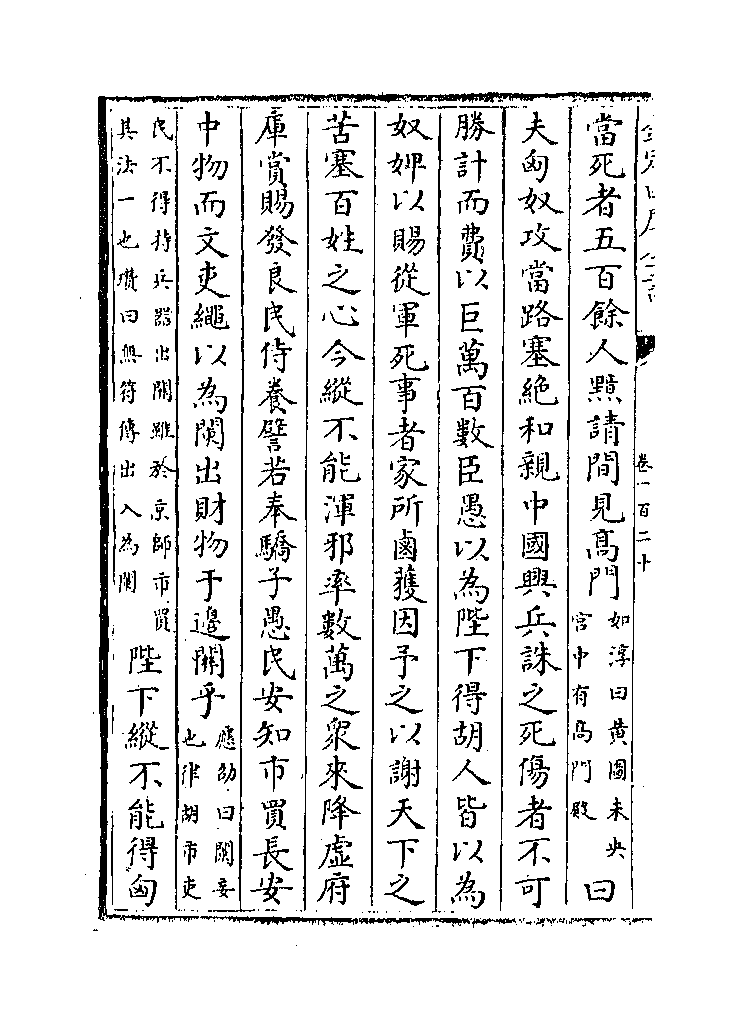 欽定四庫全書
卷一百二十
當死者五百餘人黯請間見髙門如淳曰黄圖未央宫中有髙門殿曰
夫匈奴攻當路塞絶和親中國興兵誅之死傷者不可
勝計而費以巨萬百數臣愚以為陛下得胡人皆以為
奴婢以賜從軍死事者家所鹵獲因予之以謝天下之
苦塞百姓之心今縱不能渾邪率數萬之衆來降虛府
庫賞賜發良民侍養譬若奉驕子愚民安知市買長安
中物而文吏繩以為闌出財物于邊關乎應劭曰闌妄也律胡市吏
民不得持兵器出關雖於京師市買其法一也瓚曰無符傳出入為闌陛下縱不能得匈